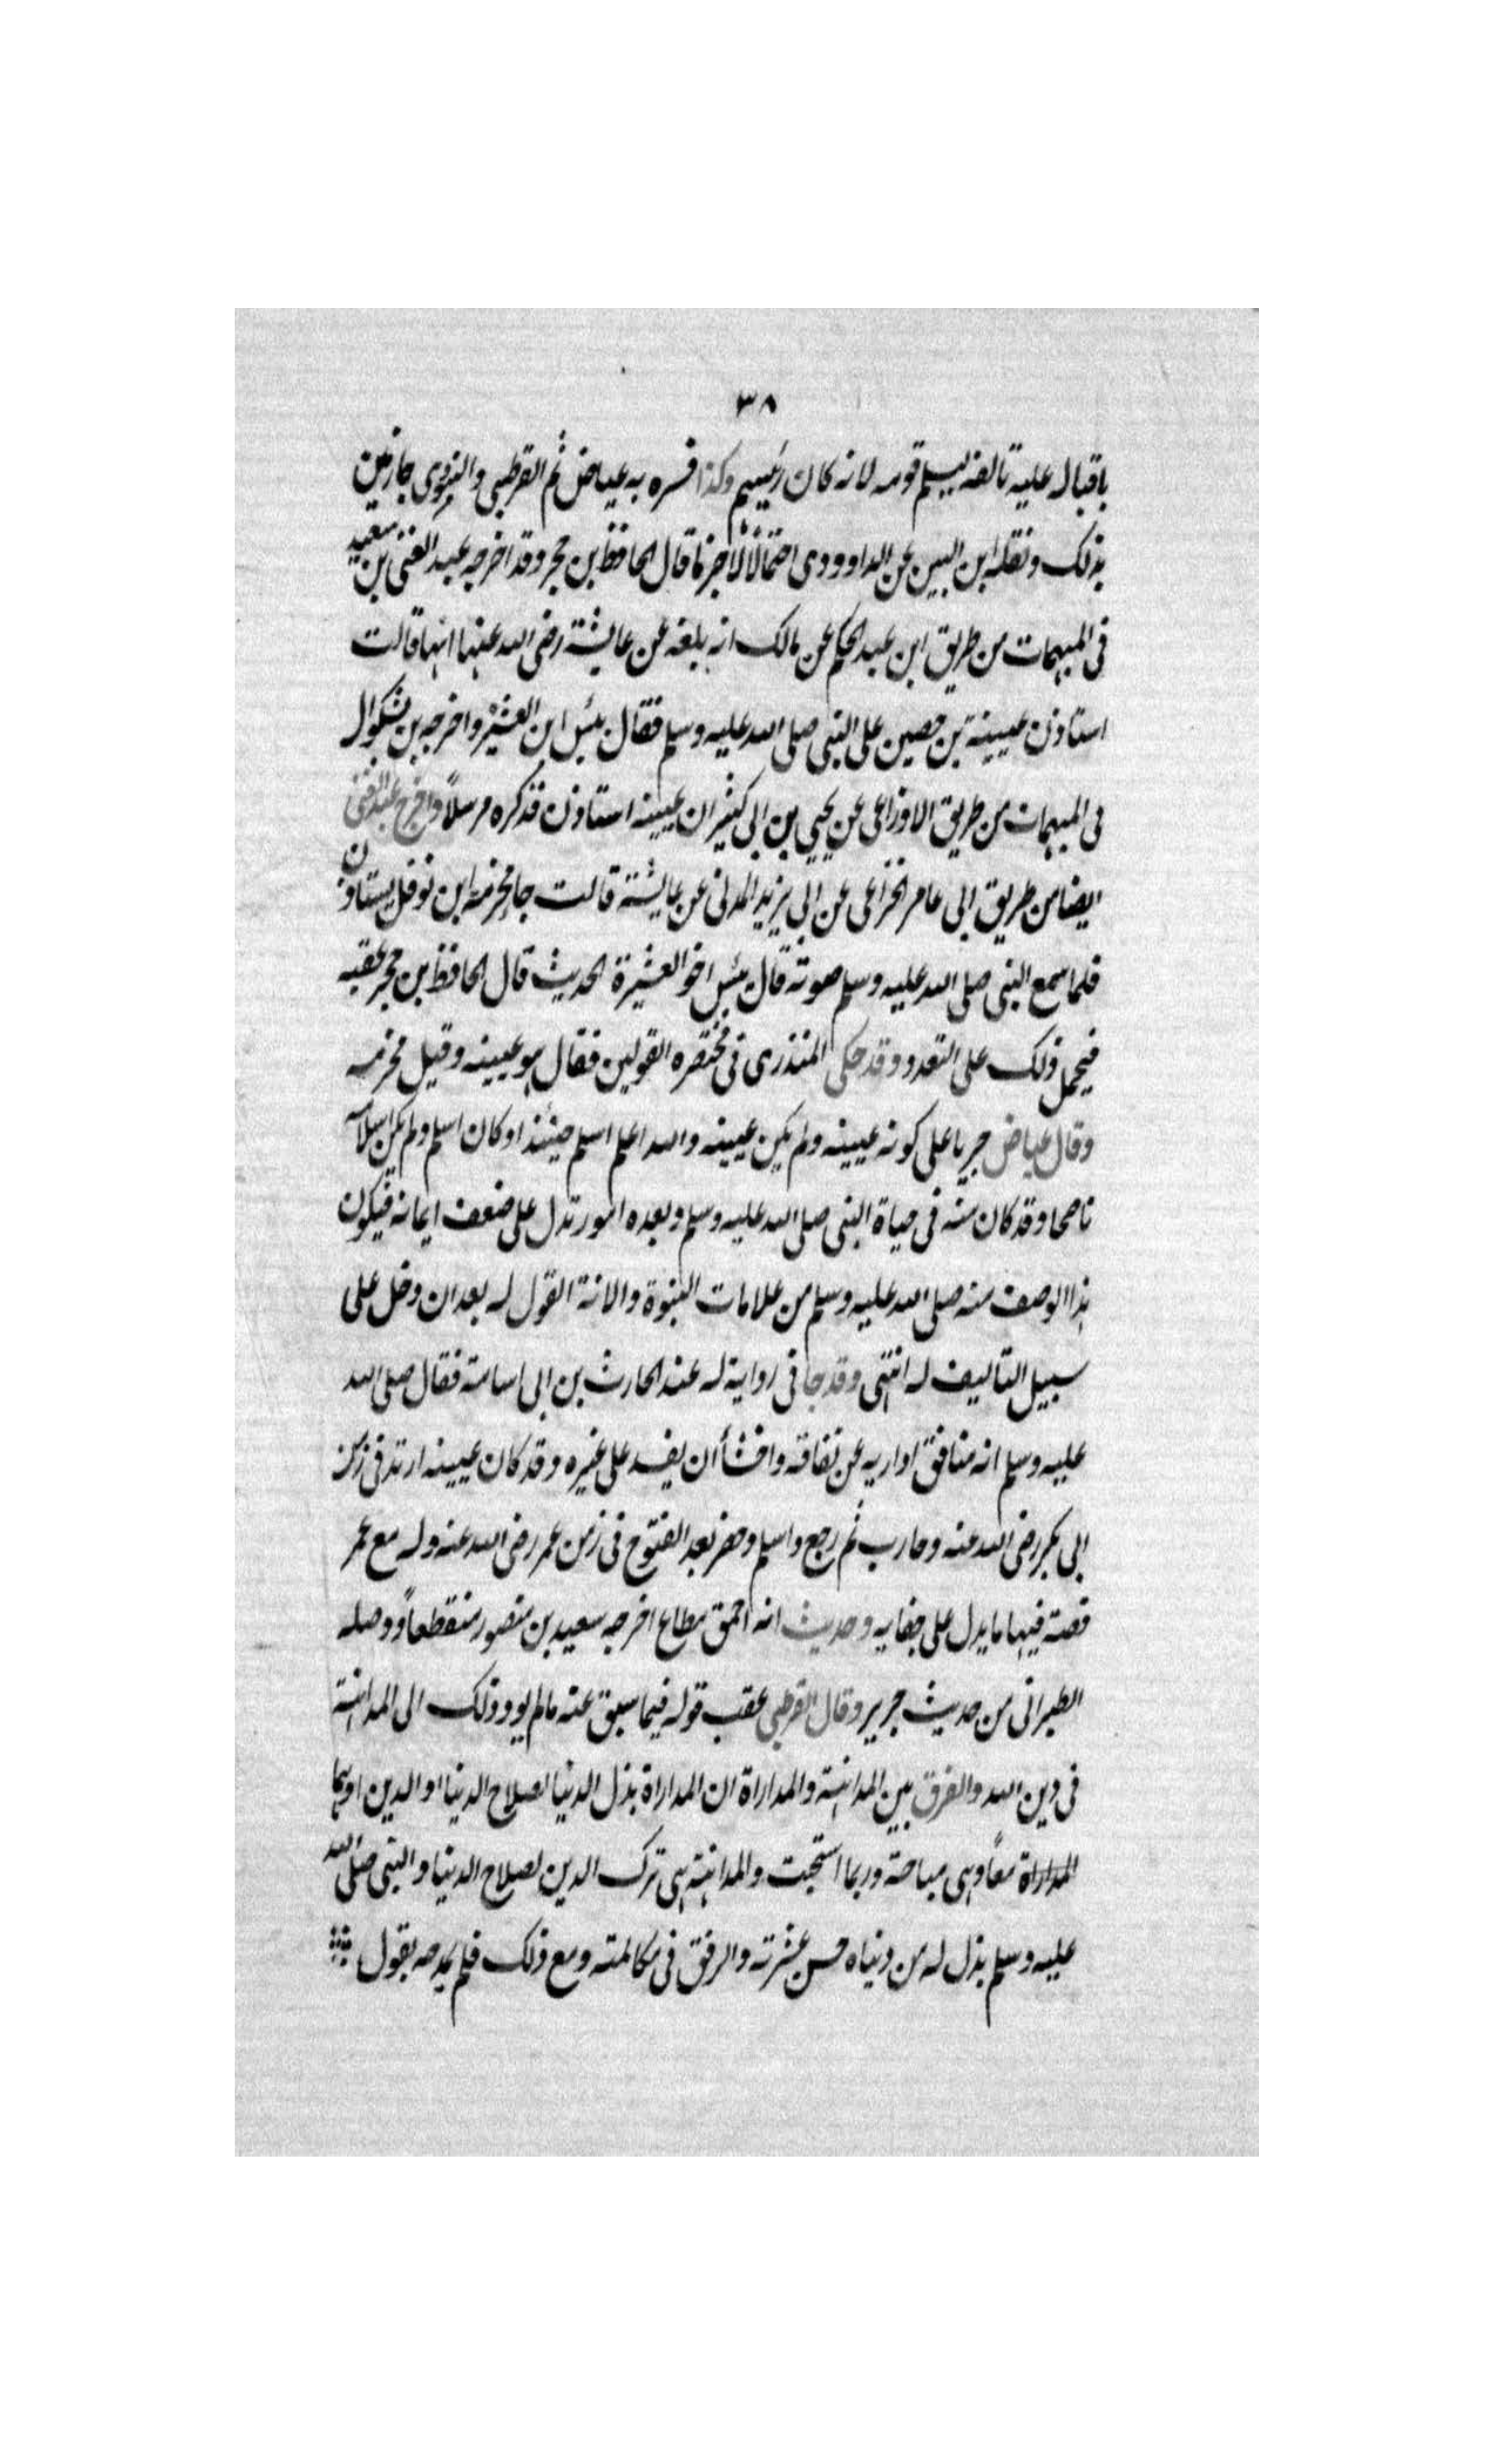 ٣٨
باقباله عليه تالفه ليسلم قومه لانه كان رئيسهم وكذا فسره به عياض ثم القرطبي والنووى جازمين
بذلك ونقله ابن التين عن الداوودى احتمالا لا جزما قال الحافظ بن حجر وقد اخرجه عبد الغنى بن سعيد
فى المبهمات من طريق ابن عبد الحكم عن مالك انه بلغه عن عايشة رضى الله عنها انها قالت
استاذن عيينة بن حصين على النبى صلى الله عليه وسلم فقال بئس ابن العشيرة واخرجه بن بشكوال
فى المبهمات من طريق الاوزاعى عن يحيى بن ابى كثير ان عيينه استاذن فذكره مرسلاً واخرج عبد الغنى
ايضا من طريق ابى عامر الخزاعى عن ابى يزيد المدنى عن عايشة قالت جا مخرمة ابن نوفل يستاذن
فلما سمع النبى صلى الله عليه وسلم صوته قال بئس اخو العشيرة الحديث قال الحافظ بن حجر عقبه
فيحمل ذلك على التعدد وقد حكى المنذرى فى مختصره القولين فقال هو عيينه وقيل مخرمه
وقال عياض جريا على كونه عيينه ولم يكن عيينه والله اعلم اسلم حينئذ او كان اسلم ولم يكن اسلامه
ناصحا وقد كان منه فى حياة النبى صلى الله عليه وسلم وبعده امور تدل على ضعف ايمانه فيكون
هذا الوصف منه صلى الله عليه وسلم من علامات النبوة والانة القول له بعد ان دخل على
سبيل التاليف له انتهى وقد جا فى رواية له عند الحارث بن ابى اسامة فقال صلى الله
عليه وسلم انه منافق اداريه عن نفاقه واخشأ ان يفسد على غيره وقد كان عيينه ارتد فى زمن
ابى بكر رضى الله عنه وحارب ثم رجع واسلم وحضر بعد الفتوح فى زمن عمر رضى الله عنه وله مع عمر
قصة فيها ما يدل على جفايه وحديث انه احمق مطاع اخرجه سعيد بن منصور منقطعاً ووصله
الطبرانى من حديث جرير وقال القرطبى عقب قوله فيما سبق عنه مالم يود ذلك الى المداهنة
فى دين الله والفرق بين المداهنة والمداراة ان المداراة بذل الدنيا لصلاح الدنيا او الدين او هما
المداراة معاً وهى مباحة وربما استحبت والمداهنة هى ترك الدين لصلاح الدنيا والنبى صلى الله
عليه وسلم بذل له من دنياه حسن عشرته والرفق فى مكالمته ومع ذلك فلم يمدحه بقول